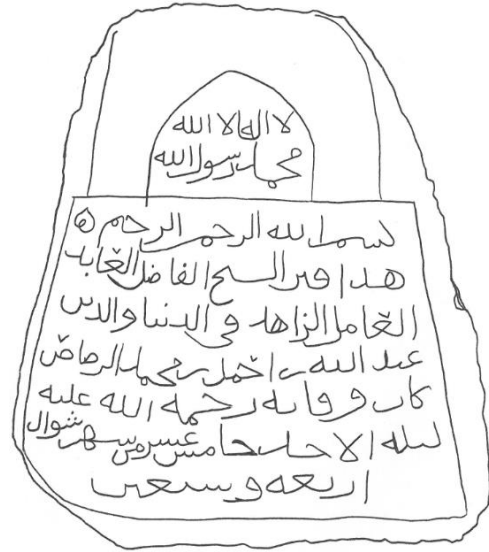 لا اله الا الله
محمد رسول الله
بسم الله الرحمن الرحيم ه
هذا قبر الشيخ الفاضل العابد
العامل الزاهد في الدنيا والدين
عبد الله بن احمد بن محمد
كان وفاته رحمه الله عليه
ليله الاحد خامس عشر من شهر شوال
اربعه